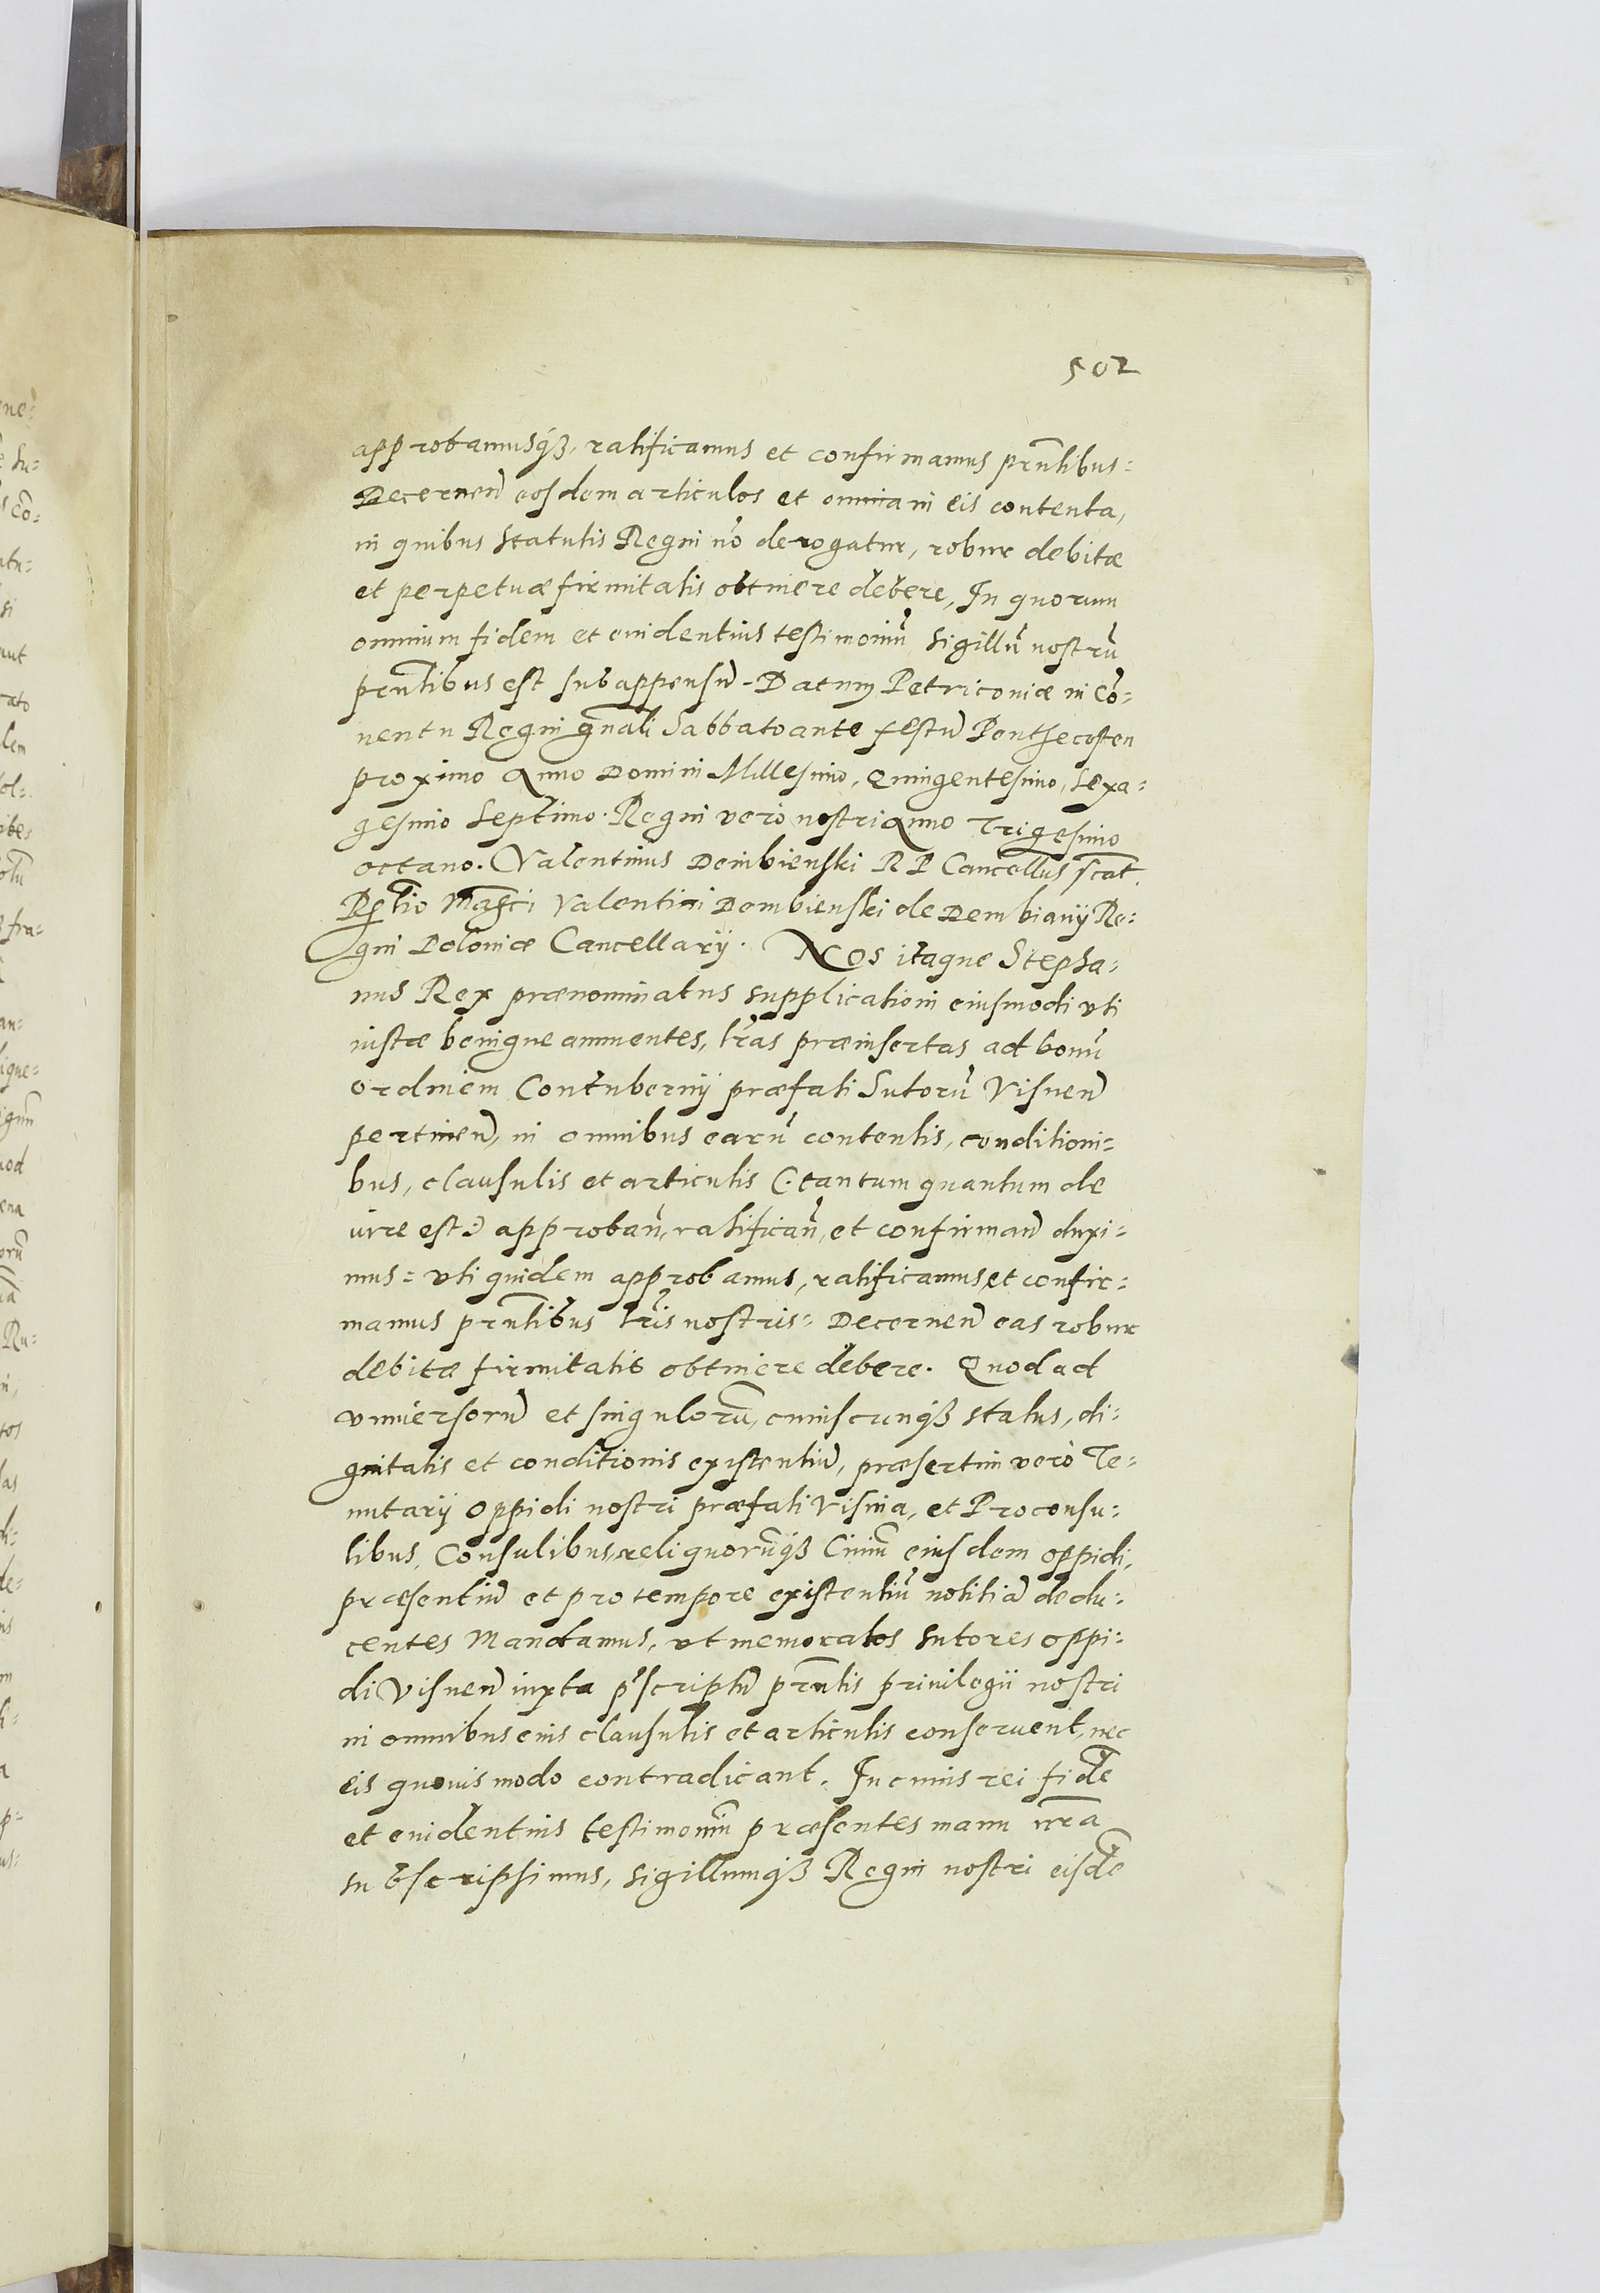 502
approbamusqꝫ, ratificamus et confirmamus prñtibus:
Decerneñ eosdem articulos et omnia in eis contenta,
in quibus statutis Regni nõ derogatur, robur debitæ
et perpetuæ firmitatis obtinere debere, In quorum
omnium fidem et euidentius testimoniũ sigillũ nostrũ
prñtibus est subappensũ. Datum Petricouiæ in Cõ-
uentu Regni gñali Sabbato ante festũ Penthecosten
proximo Anno Domini Millesimo, Quingentesimo, sexa-
gesimo septimo. Regni vero nostri Anno Trigesimo
octauo. Valentinus Dembienski R P Cancellus sc̃at
Relatio Magci Valentini Dembienski de Dembiany Re-
gni Poloniæ Cancellarij. Nos itaque Stepha-
nus Rex prænominatus supplicationi eiusmodi vti
iustæ benigne annuentes, lr̃as præinsertas ad bonũ
ordinem Contubernij præfati Sutorũ Visneñ
pertineñ, in omnibus earũ contentis, conditioni-
bus, clausulis et articulis (: tantum quantum de
iure est :) approbañ, ratificañ, et confirmañ duxi-
mus: vti quidem approbamus, ratificamus et confir-
mamus prñtibus lr̃is nostris: Decerneñ eas robur
debitæ firmitatis obtinere debere. Quod ad
vniuersorũ et singulorũ, cuiuscunqꝫ status, di-
gnitatis et conditionis existentiũ, præsertim verò Te-
nutarij oppidi nostri præfati Visnia, et Proconsu-
libus, Consulibus, reliquorũqꝫ Ciuiũ eiusdem oppidi,
præsentiũ et pro tempore existentiũ notitiã dedu-
centes Mandamus, vt memoratos sutores oppi-
di Visneñ iuxta p̃scriptũ prñtis priuilegii nostri
in omnibus eius clausulis et articulis conseruent, nec
eis quouis modo contradicant. In cuius rei fidẽ
et euidentius testimoniũ præsentes manu nr̃a
subscripsimus, sigillumqꝫ Regni nostri eisdẽ